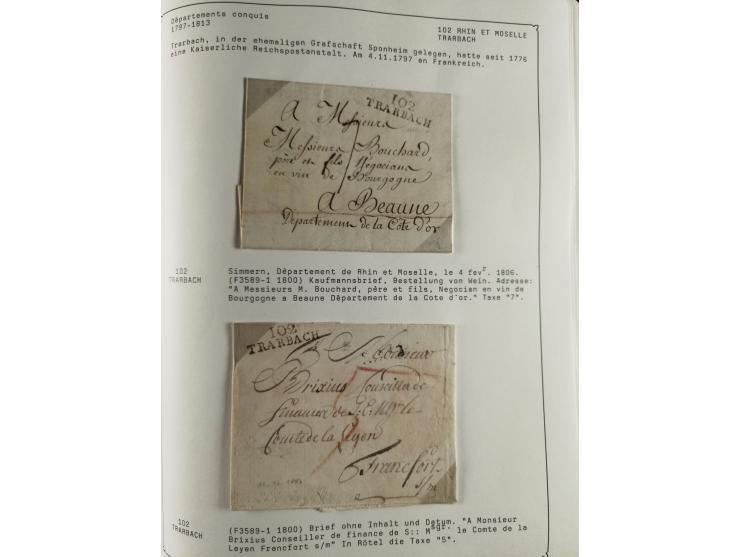 Départements conquis
1797-1813
102 RHIN ET MOSELLE
TRARBACH
Trarbach, in der ehemaligen Grafschaft Sponheim gelegen, hatte seit 1776
eine Kaiserliche Reichspostanstalt. Am 4.11.1797 an Frankreich.
102
TRARBACH
A Messieurs
Messieurs Bouchard,
père et fils Négocians
en vin de Bourgogne
A Beaune
Departement de la Cote d'or
102
TRARBACH
Simmern, Département de Rhin et Moselle, le 4 fevr. 1806.
(F3589-1 1800) Kaufmannsbrief, Bestellung von Wein. Adresse:
"A Messieurs M. Bouchard, père et fils, Negocian en vin de
Bourgogne a Beaune Département de la Cote d'or." Taxe "7".
102
TRARBACH
A Monsieur
Brixius Conseillé de
finance de S: E: Mgr le
Comte de la Leyen
Francfort
s/m
102
TRARBACH
(F3589-1 1800) Brief ohne Inhalt und Datum. "A Monsieur
Brixius Conseiller de finance de S:: Mgr. le Comte de la
Leyen Francfort s/m" In Rötel die Taxe "5".